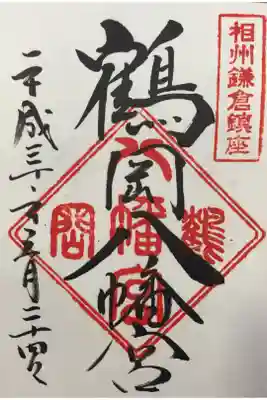 相州鎌倉鎮座
鶴岡八幡宮
鶴岡
八幡宮
平成三十年五月二十四日